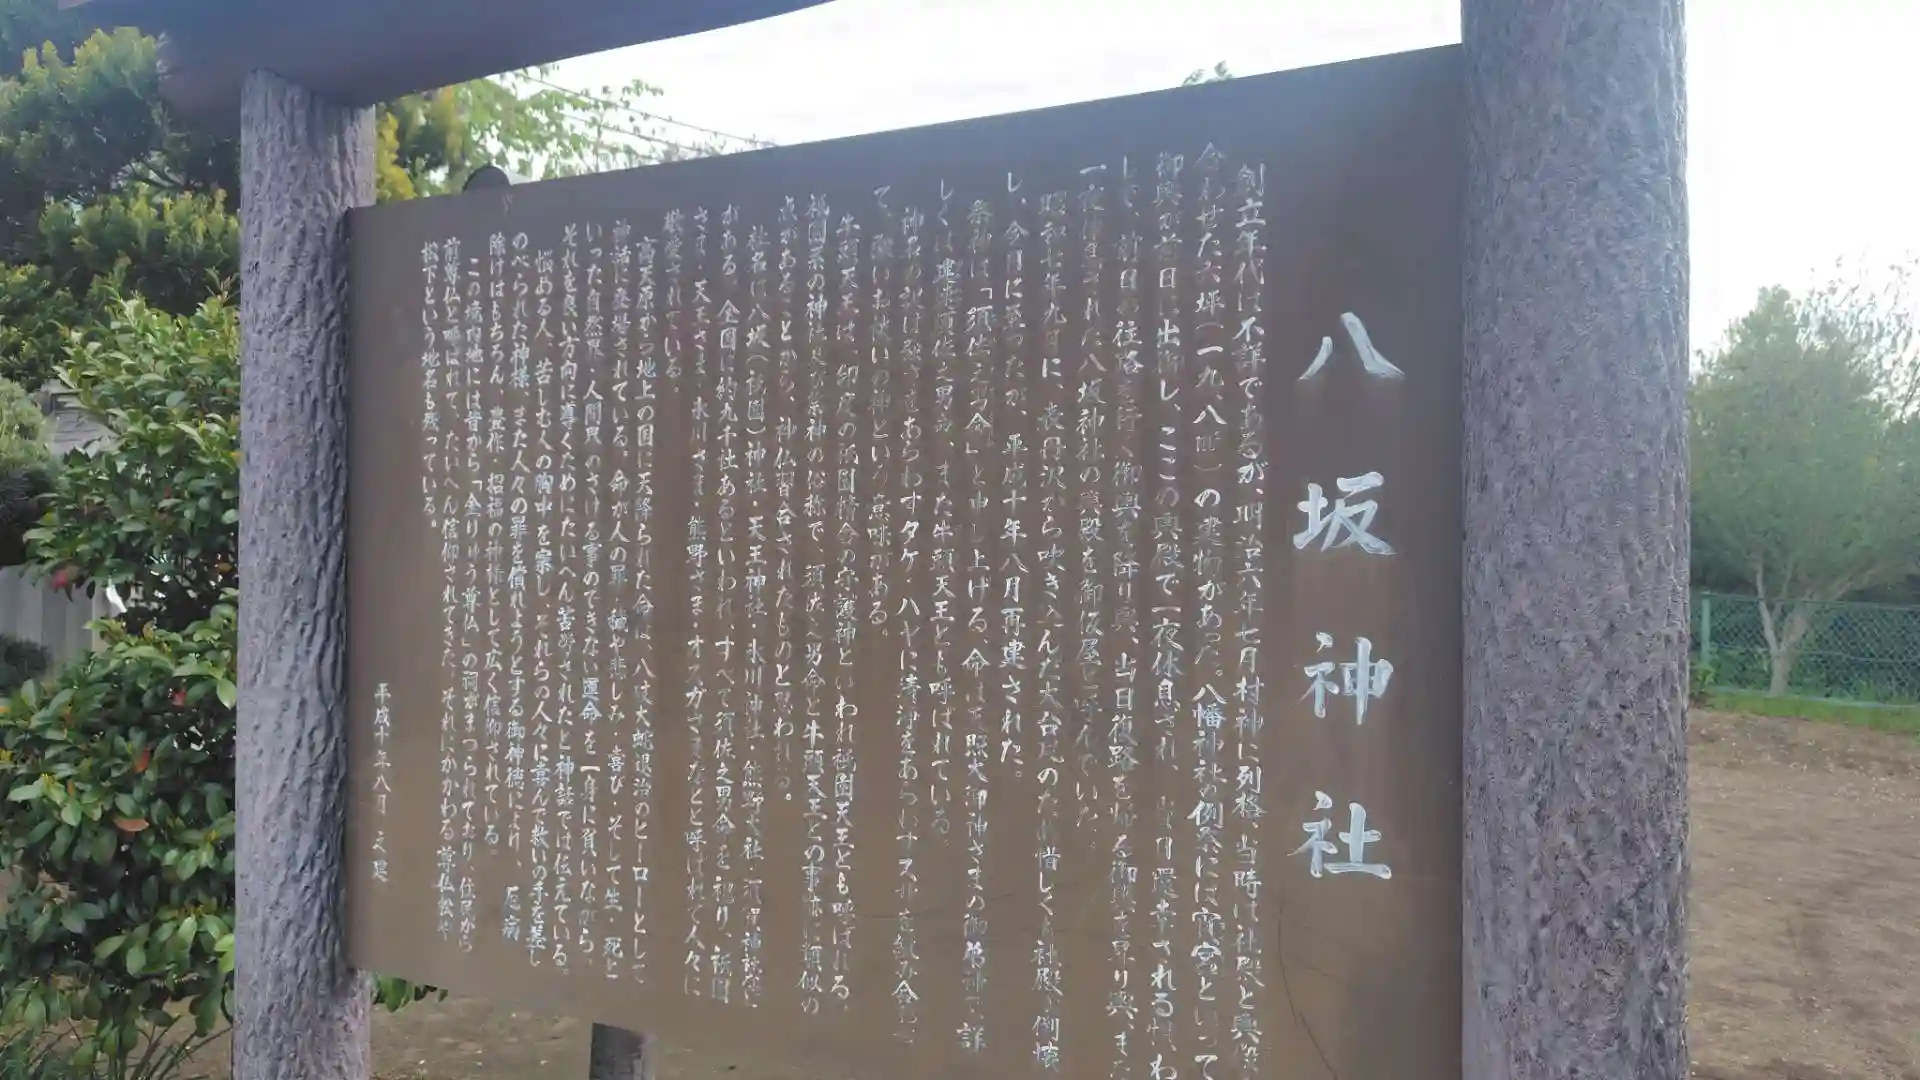 八坂神社
創立年代は不詳であるが、明治六年七月村神に列格、当時は社殿と輿殿
合わせた六坪(一九、八㎡)の建物があった。八幡神社の例祭には宵宮といって
御輿が前日に出御し、ここの輿殿で一夜休息され、当日還幸される慣わ
しで、前日の往路を行く御輿を降り輿、当日復路を帰る御輿を昇り輿、また
一夜椿まされた八坂神社の輿殿を御仮屋と呼んでいた。
昭和七年九月に、表丹沢から吹き込んだ大台風のため惜しくも社殿が倒壊
し、今日に至ったが、平成十年八月再建された。
祭神は「須佐之男命」と申し上げる、命は天照大御神さまの御弟神で、詳
しくは建速須佐之男命、また牛頭天王とも呼ばれている。
神名の訳は強さをあらわすタケ・ハヤに清浄をあらわすスサを組み合わせ
て、強いお祓いの神という意味がある。
牛頭天王は、印度の祇園精舎の守護神といわれ祇園天王とも呼ばれる。
祇園系の神社及び祭神の俗称で、須佐之男命と牛頭天王との事跡に類似の
点があることから、神仏習合されたものと思われる。
社名は八坂(祇園)神社・天王神社・氷川神社・熊野
がある。全国に約九千社あるといわれ、すべて須佐之男命を祀り、祇園
さま・天王さま・氷川さま・熊野さま・オスガさまなどと呼ばれて人々に
敬愛されている。
高天原から地上の国に天降られた命は、八岐大蛇退治のヒーローとして
神話に登場されている。命が人の罪・穢や悲しみ・喜び・そして生・死と
いった自然界・人間界のさける事のできない運命を一身に負いながら、
それを良い方向に導くためにたいへん苦労されたと神話では伝えている。
悩ある人、苦しむ人の胸中を察し、それらの人々に喜んで救いの手を差し
のべられた神様、また人々の罪を償れようとする御神徳により、厄病
除けはもちろん、豊作・招福の神様として広く信仰されている。
この境内地には昔から「金りゅう尊仏」の祠がまつられており、住民から
前尊仏と呼ばれて、たいへん信仰されてきた。それにかかわる尊仏松や
松下という地名も残っている。
平成十年八月 之建